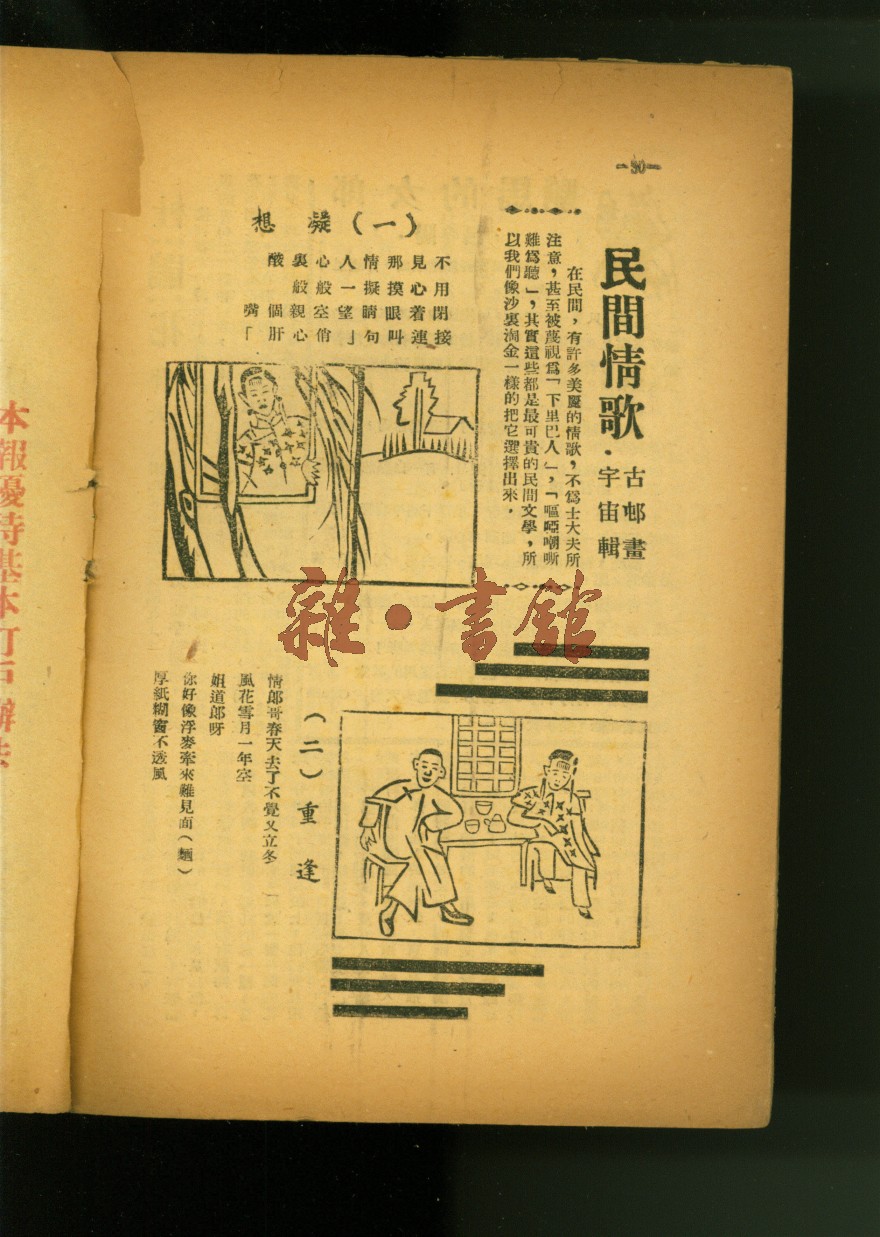 —90—
民間情歌・
古邨畫
字宙輯
在民間，有許多美麗的情歌，不爲士大夫所
注意，甚至被蔑視爲「下里巴人」，「嘔啞嘲哳
難爲聽」，其實這些都是最可貴的民間文學，所
以我們像沙裏淘金一樣的把它選擇出來．
（一）凝想
不見那情人心裏酸
用心摸擬一般般
閉着眼睛望空親個嘴
接連叫句「俏心肝」
（二）重逢
情郎哥春天去了不覺又立冬
風花雪月一年空
姐道郎呀
你好像浮麥牽來難見面（麵）
厚紙糊窗不透風
本報優待基本訂戶辦法
雜・書館